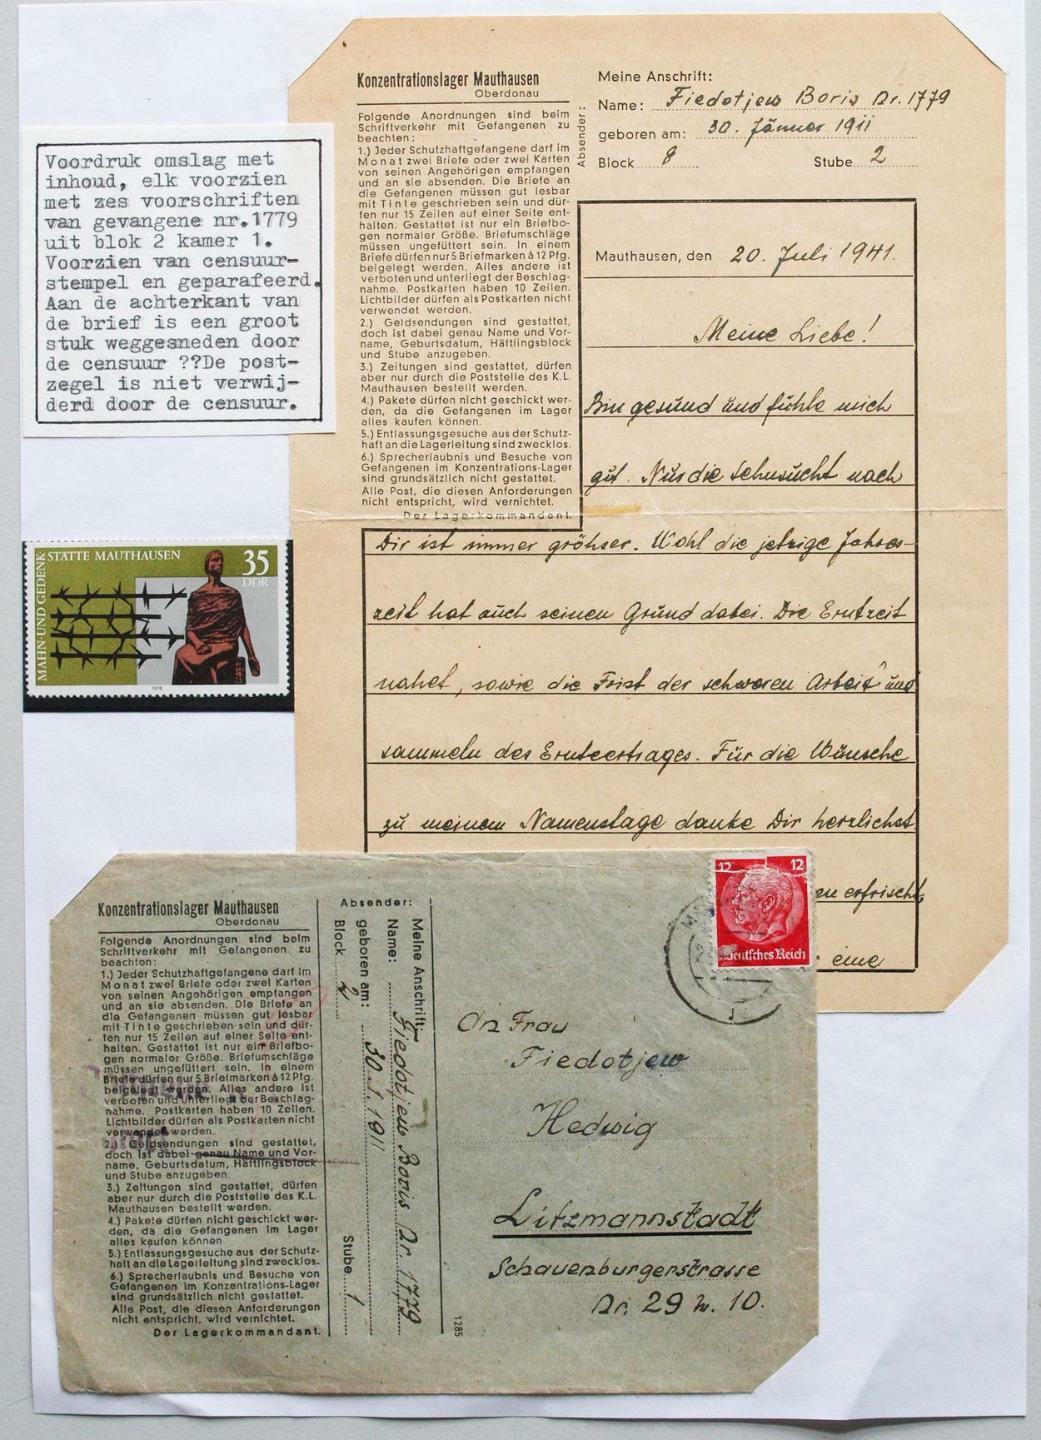 Voordruk omslag met
inhoud, elk voorzien
met zes voorschriften
van gevangene nr.1779
uit blok 2 kamer 1.
Voorzien van censuur-
stempel en geparafeerd.
Aan de achterkant van
de brief is een groot
stuk weggesneden door
de censuur ??De post-
zegel is niet verwij-
derd door de censuur.
MAHN-UND GEDENK
STÄTTE MAUTHAUSEN
35
DDR
1978
Konzentrationslager Mauthausen
Oberdonau
Folgende Anordnungen sind beim
Schriftverkehr mit Gefangenen zu
beachten:
1.) Jeder Schutzhaftgefangene darf im
Monat zwei Briefe oder zwei Karten
von seinen Angehörigen empfangen
und an sie absenden. Die Briefe an
die Gefangenen müssen gut lesbar
mit Tinte geschrieben sein und dür-
fen nur 15 Zeilen auf einer Seite ent-
halten. Gestattet ist nur ein Briefbo-
gen normaler Größe. Briefumschläge
müssen ungefüttert sein. In einem
Briefe dürfen nur 5 Briefmarken à 12 Pfg.
beigelegt werden. Alles andere ist
verboten und unterliegt der Beschlag-
nahme. Postkarten haben 10 Zeilen.
Lichtbilder dürfen als Postkarten nicht
verwendet werden.
2.) Geldsendungen sind gestattet,
doch ist dabei genau Name und Vor-
name, Geburtsdatum, Häftlingsblock
und Stube anzugeben.
3.) Zeitungen sind gestattet, dürfen
aber nur durch die Poststelle des K.L.
Mauthausen bestellt werden.
4.) Pakete dürfen nicht geschickt wer-
den, da die Gefangenen im Lager
alles kaufen können.
5.) Entlassungsgesuche aus der Schutz-
haft an die Lagerleitung sind zwecklos.
6.) Sprecherlaubnis und Besuche von
Gefangenen im Konzentrations-Lager
sind grundsätzlich nicht gestattet.
Alle Post, die diesen Anforderungen
nicht entspricht, wird vernichtet.
Der Lagerkommandant.
Absender:
Meine Anschrift:
Name: Fiedotjew Boris Nr. 1779
geboren am: 30. Jänner 1911
Block 8 Stube 2
Mauthausen, den 20. Juli 1941.
Meine Liebe!
Bin gesund und fühle mich
gut. Nur die Sehnsucht nach
Dir ist immer gröhser. Wohl die jetzige Jahres-
zeit hat auch seinen Grund dabei. Die Erntzeit
nahet, sowie die Frist der schweren Arbeit und
sammeln des Ernteertrages. Für die Wünsche
zu meinem Namenstage danke Dir herzlichst
en erfrischt,
eine
Konzentrationslager Mauthausen
Oberdonau
Folgende Anordnungen sind beim
Schriftverkehr mit Gefangenen zu
beachten:
1.) Jeder Schutzhaftgefangene darf im
Monat zwei Briefe oder zwei Karten
von seinen Angehörigen empfangen
und an sie absenden. Die Briefe an
die Gefangenen müssen gut lesbar
mit Tinte geschrieben sein und dür-
fen nur 15 Zeilen auf einer Seite ent-
halten. Gestattet ist nur ein Briefbo-
gen normaler Größe. Briefumschläge
müssen ungefüttert sein. In einem
Briefe dürfen nur 5 Briefmarken à 12 Pfg.
beigelegt werden. Alles andere ist
verboten und unterliegt der Beschlag-
nahme. Postkarten haben 10 Zeilen.
Lichtbilder dürfen als Postkarten nicht
verwendet werden.
2.) Geldsendungen sind gestattet,
doch ist dabei genau Name und Vor-
name, Geburtsdatum, Häftlingsblock
und Stube anzugeben.
3.) Zeitungen sind gestattet, dürfen
aber nur durch die Poststelle des K.L.
Mauthausen bestellt werden.
4.) Pakete dürfen nicht geschickt wer-
den, da die Gefangenen im Lager
alles kaufen können
5.) Entlassungsgesuche aus der Schutz-
haft an die Lagerleitung sind zwecklos.
6.) Sprecherlaubnis und Besuche von
Gefangenen im Konzentrations-Lager
sind grundsätzlich nicht gestattet.
Alle Post, die diesen Anforderungen
nicht entspricht, wird vernichtet.
Der Lagerkommandant.
Absender:
Meine Anschrift:
Name: Fiedotjew Boris Nr. 1779
geboren am: 30. I. 1911
Block 2 Stube 1
1285
12 12
Deutsches Reich
An Frau
Fiedotjew
Hedwig
Litzmannstadt
Schauenburgerstrasse
Nr. 29 W. 10.